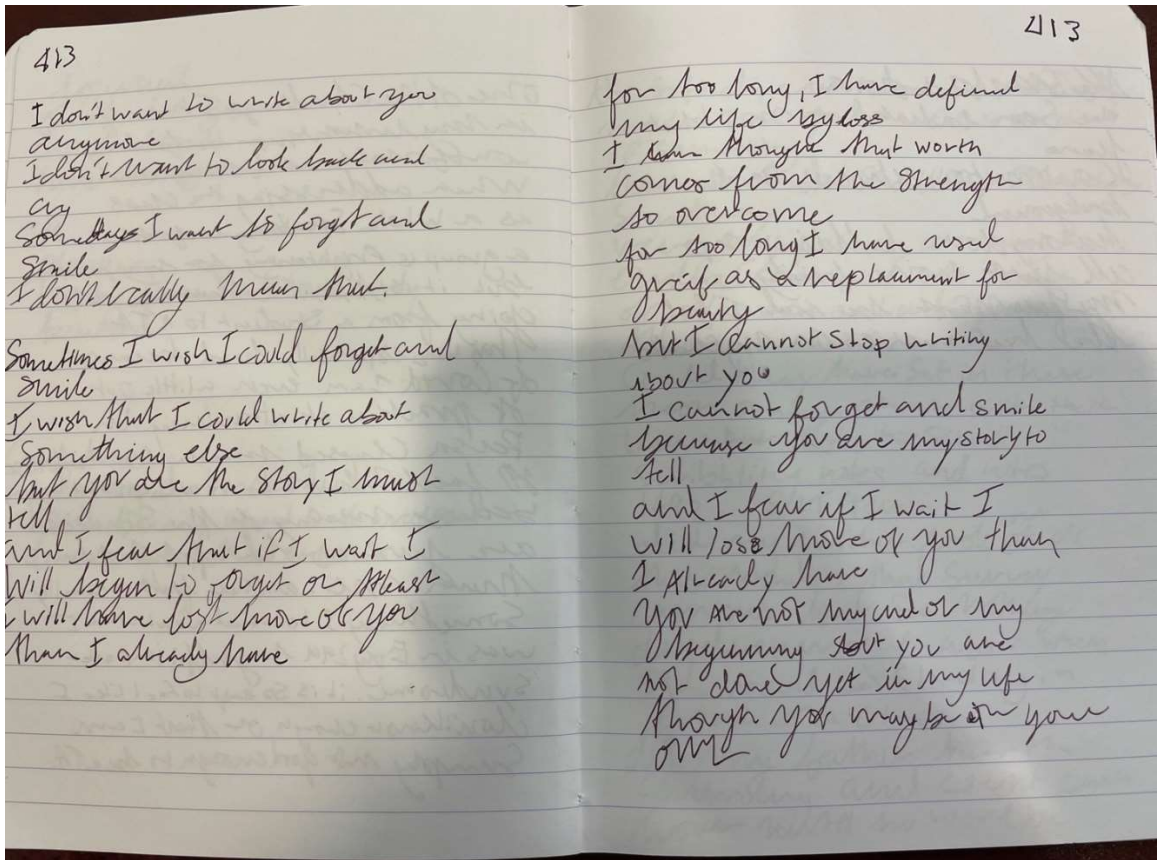 413
I don't want to write about you
anymore
I don't want to look back and
cry
Somedays I want to forget and
smile
I don't really mean that.
Sometimes I wish I could forget and
smile
I wish that I could write about
something else
but you are the story I must
tell
and I fear that if I wait I
will begin to forget or atleast
I will have lost more of you
than I already have
413
for too long, I have defined
my life by loss
I thought that worth
comes from the strength
to overcome
for too long I have used
greif as a replacement for
beauty
but I cannot stop writing
about you
I cannot forget and smile
because you are my story to
tell
and I fear if I wait I
will lose more of you than
I Already have
you are not my end or my
beginning but you are
not done yet in my life
though you may be in your
own